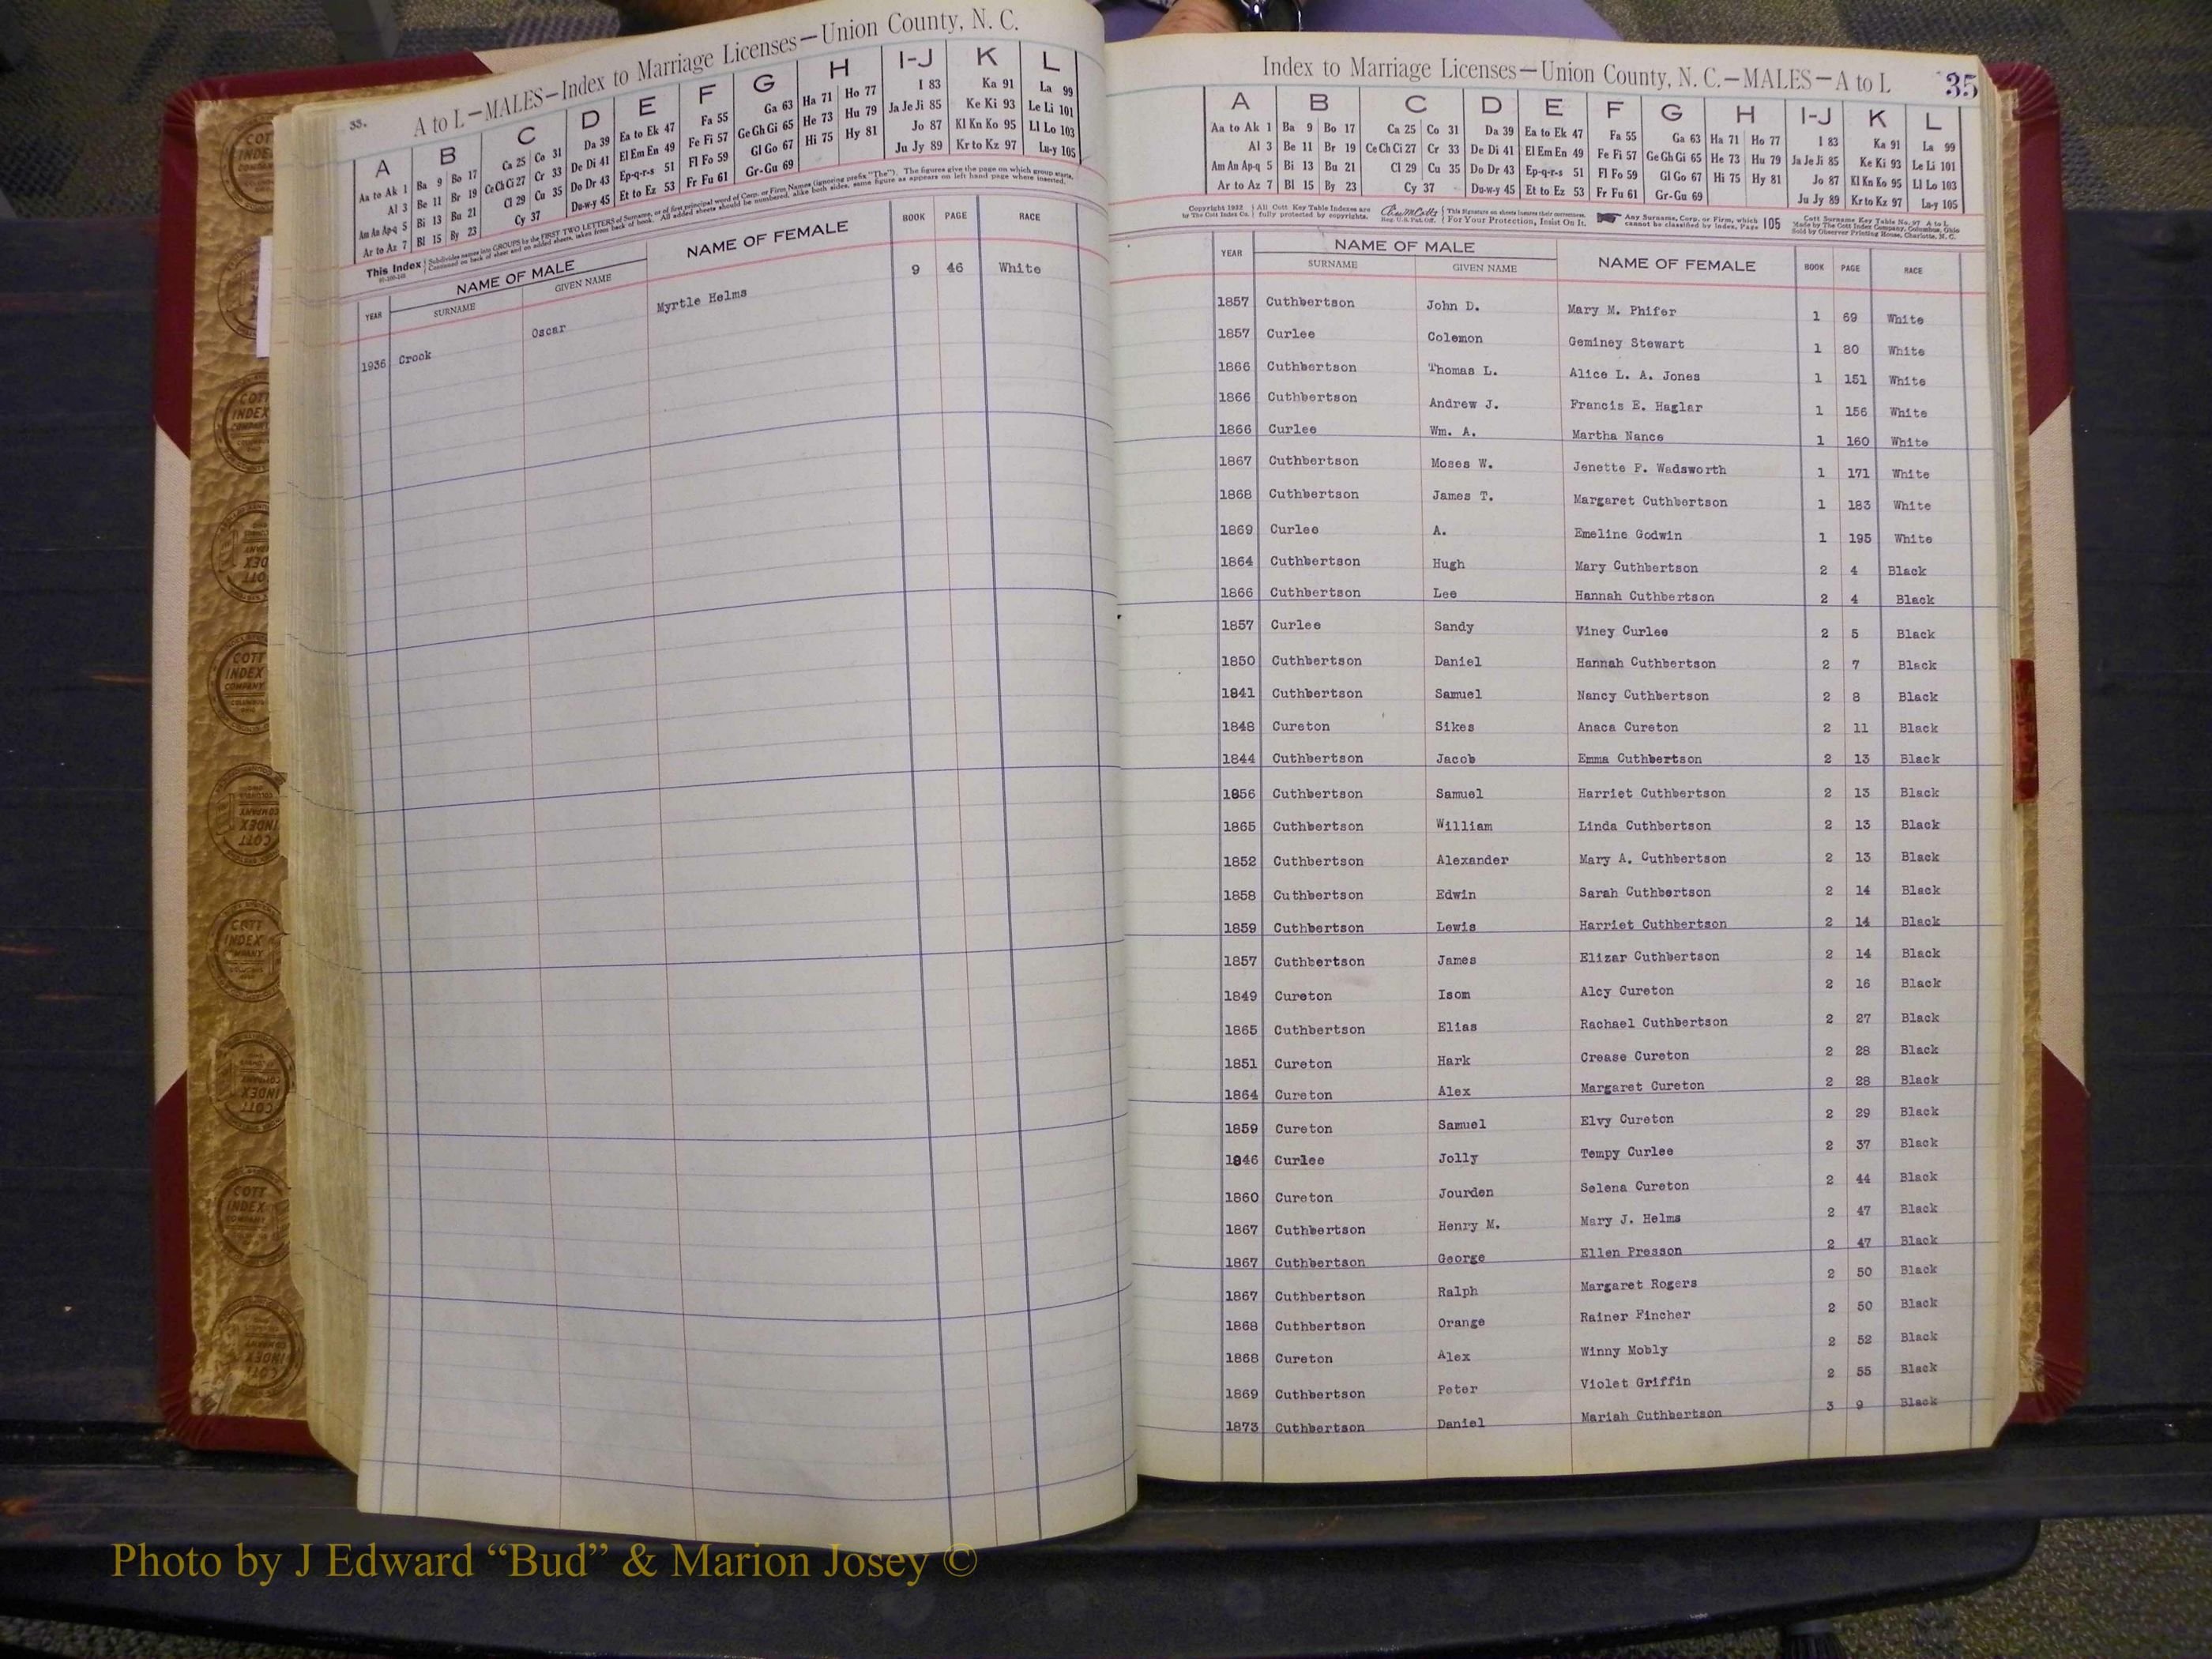 33.
A to L—MALES—Index to Marriage Licenses—Union County, N. C.
A B C D E F G H I-J K L
Aa to Ak 1 Ba 9 Bo 17 Ca 25 Co 31 Da 39 Ea to Ek 47 Fa 55 Ga 63 Ha 71 Ho 77 I 83 Ka 91 La 99
Al 3 Be 11 Br 19 Ce Ch Ci 27 Cr 33 De Di 41 El Em En 49 Fe Fi 57 Ge Gh Gi 65 He 73 Hu 79 Ja Je Ji 85 Ke Ki 93 Le Li 101
Am An Ap-q 5 Bi 13 Bu 21 Cl 29 Cu 35 Do Dr 43 Ep-q-r-s 51 Fl Fo 59 Gl Go 67 Hi 75 Hy 81 Jo 87 Kl Kn Ko 95 Ll Lo 103
Ar to Az 7 Bl 15 By 23 Cy 37 Du-w-y 45 Et to Ez 53 Fr Fu 61 Gr-Gu 69 Ju Jy 89 Kr to Kz 97 Lu-y 105
This Index Subdivides names into GROUPS by the FIRST TWO LETTERS of Surname, or of first principal word of Corp. or Firm Names (ignoring prefix "The"). The figures give the page on which group starts.
Continued on back of sheet and on added sheets, taken from back of book. All added sheets should be numbered, alike both sides, same figure as appears on left hand page where inserted.
YEAR NAME OF MALE NAME OF FEMALE BOOK PAGE RACE
SURNAME GIVEN NAME
1936 Crook Oscar Myrtle Helms 9 46 White
Index to Marriage Licenses—Union County, N. C.—MALES—A to L 35
A B C D E F G H I-J K L
Aa to Ak 1 Ba 9 Bo 17 Ca 25 Co 31 Da 39 Ea to Ek 47 Fa 55 Ga 63 Ha 71 Ho 77 I 83 Ka 91 La 99
Al 3 Be 11 Br 19 Ce Ch Ci 27 Cr 33 De Di 41 El Em En 49 Fe Fi 57 Ge Gh Gi 65 He 73 Hu 79 Ja Je Ji 85 Ke Ki 93 Le Li 101
Am An Ap-q 5 Bi 13 Bu 21 Cl 29 Cu 35 Do Dr 43 Ep-q-r-s 51 Fl Fo 59 Gl Go 67 Hi 75 Hy 81 Jo 87 Kl Kn Ko 95 Ll Lo 103
Ar to Az 7 Bl 15 By 23 Cy 37 Du-w-y 45 Et to Ez 53 Fr Fu 61 Gr-Gu 69 Ju Jy 89 Kr to Kz 97 Lu-y 105
Copyright 1922 by The Cott Index Co. All Cott Key Table Indexes are fully protected by copyrights. Reg. U.S. Pat. Off. This Signature on sheets insures their correctness. For Your Protection, Insist On It. Any Surname, Corp. or Firm, which cannot be classified by Index, Page 105
Cott Surname Key Table No. 97 A to L Made by The Cott Index Company, Columbus, Ohio Sold by Observer Printing House, Charlotte, N. C.
YEAR NAME OF MALE NAME OF FEMALE BOOK PAGE RACE
SURNAME GIVEN NAME
1857 Cuthbertson John D. Mary M. Phifer 1 69 White
1857 Curlee Colemon Geminey Stewart 1 80 White
1866 Cuthbertson Thomas L. Alice L. A. Jones 1 151 White
1866 Cuthbertson Andrew J. Francis E. Haglar 1 156 White
1866 Curlee Wm. A. Martha Nance 1 160 White
1867 Cuthbertson Moses W. Jenette F. Wadsworth 1 171 White
1868 Cuthbertson James T. Margaret Cuthbertson 1 183 White
1869 Curlee A. Emeline Godwin 1 195 White
1864 Cuthbertson Hugh Mary Cuthbertson 2 4 Black
1866 Cuthbertson Lee Hannah Cuthbertson 2 4 Black
1857 Curlee Sandy Viney Curlee 2 5 Black
1850 Cuthbertson Daniel Hannah Cuthbertson 2 7 Black
1841 Cuthbertson Samuel Nancy Cuthbertson 2 8 Black
1848 Cureton Sikes Anaca Cureton 2 11 Black
1844 Cuthbertson Jacob Emma Cuthbertson 2 13 Black
1856 Cuthbertson Samuel Harriet Cuthbertson 2 13 Black
1865 Cuthbertson William Linda Cuthbertson 2 13 Black
1852 Cuthbertson Alexander Mary A. Cuthbertson 2 13 Black
1858 Cuthbertson Edwin Sarah Cuthbertson 2 14 Black
1859 Cuthbertson Lewis Harriet Cuthbertson 2 14 Black
1857 Cuthbertson James Elizar Cuthbertson 2 14 Black
1849 Cureton Isom Alcy Cureton 2 16 Black
1865 Cuthbertson Elias Rachael Cuthbertson 2 27 Black
1851 Cureton Hark Crease Cureton 2 28 Black
1864 Cureton Alex Margaret Cureton 2 28 Black
1859 Cureton Samuel Elvy Cureton 2 29 Black
1846 Curlee Jolly Tempy Curlee 2 37 Black
1860 Cureton Jourden Selena Cureton 2 44 Black
1867 Cuthbertson Henry M. Mary J. Helms 2 47 Black
1867 Cuthbertson George Ellen Presson 2 47 Black
1867 Cuthbertson Ralph Margaret Rogers 2 50 Black
1868 Cuthbertson Orange Rainer Fincher 2 50 Black
1868 Cureton Alex Winny Mobly 2 52 Black
1869 Cuthbertson Peter Violet Griffin 2 55 Black
1873 Cuthbertson Daniel Mariah Cuthbertson 3 9 Black
Photo by J Edward “Bud” & Marion Josey ©